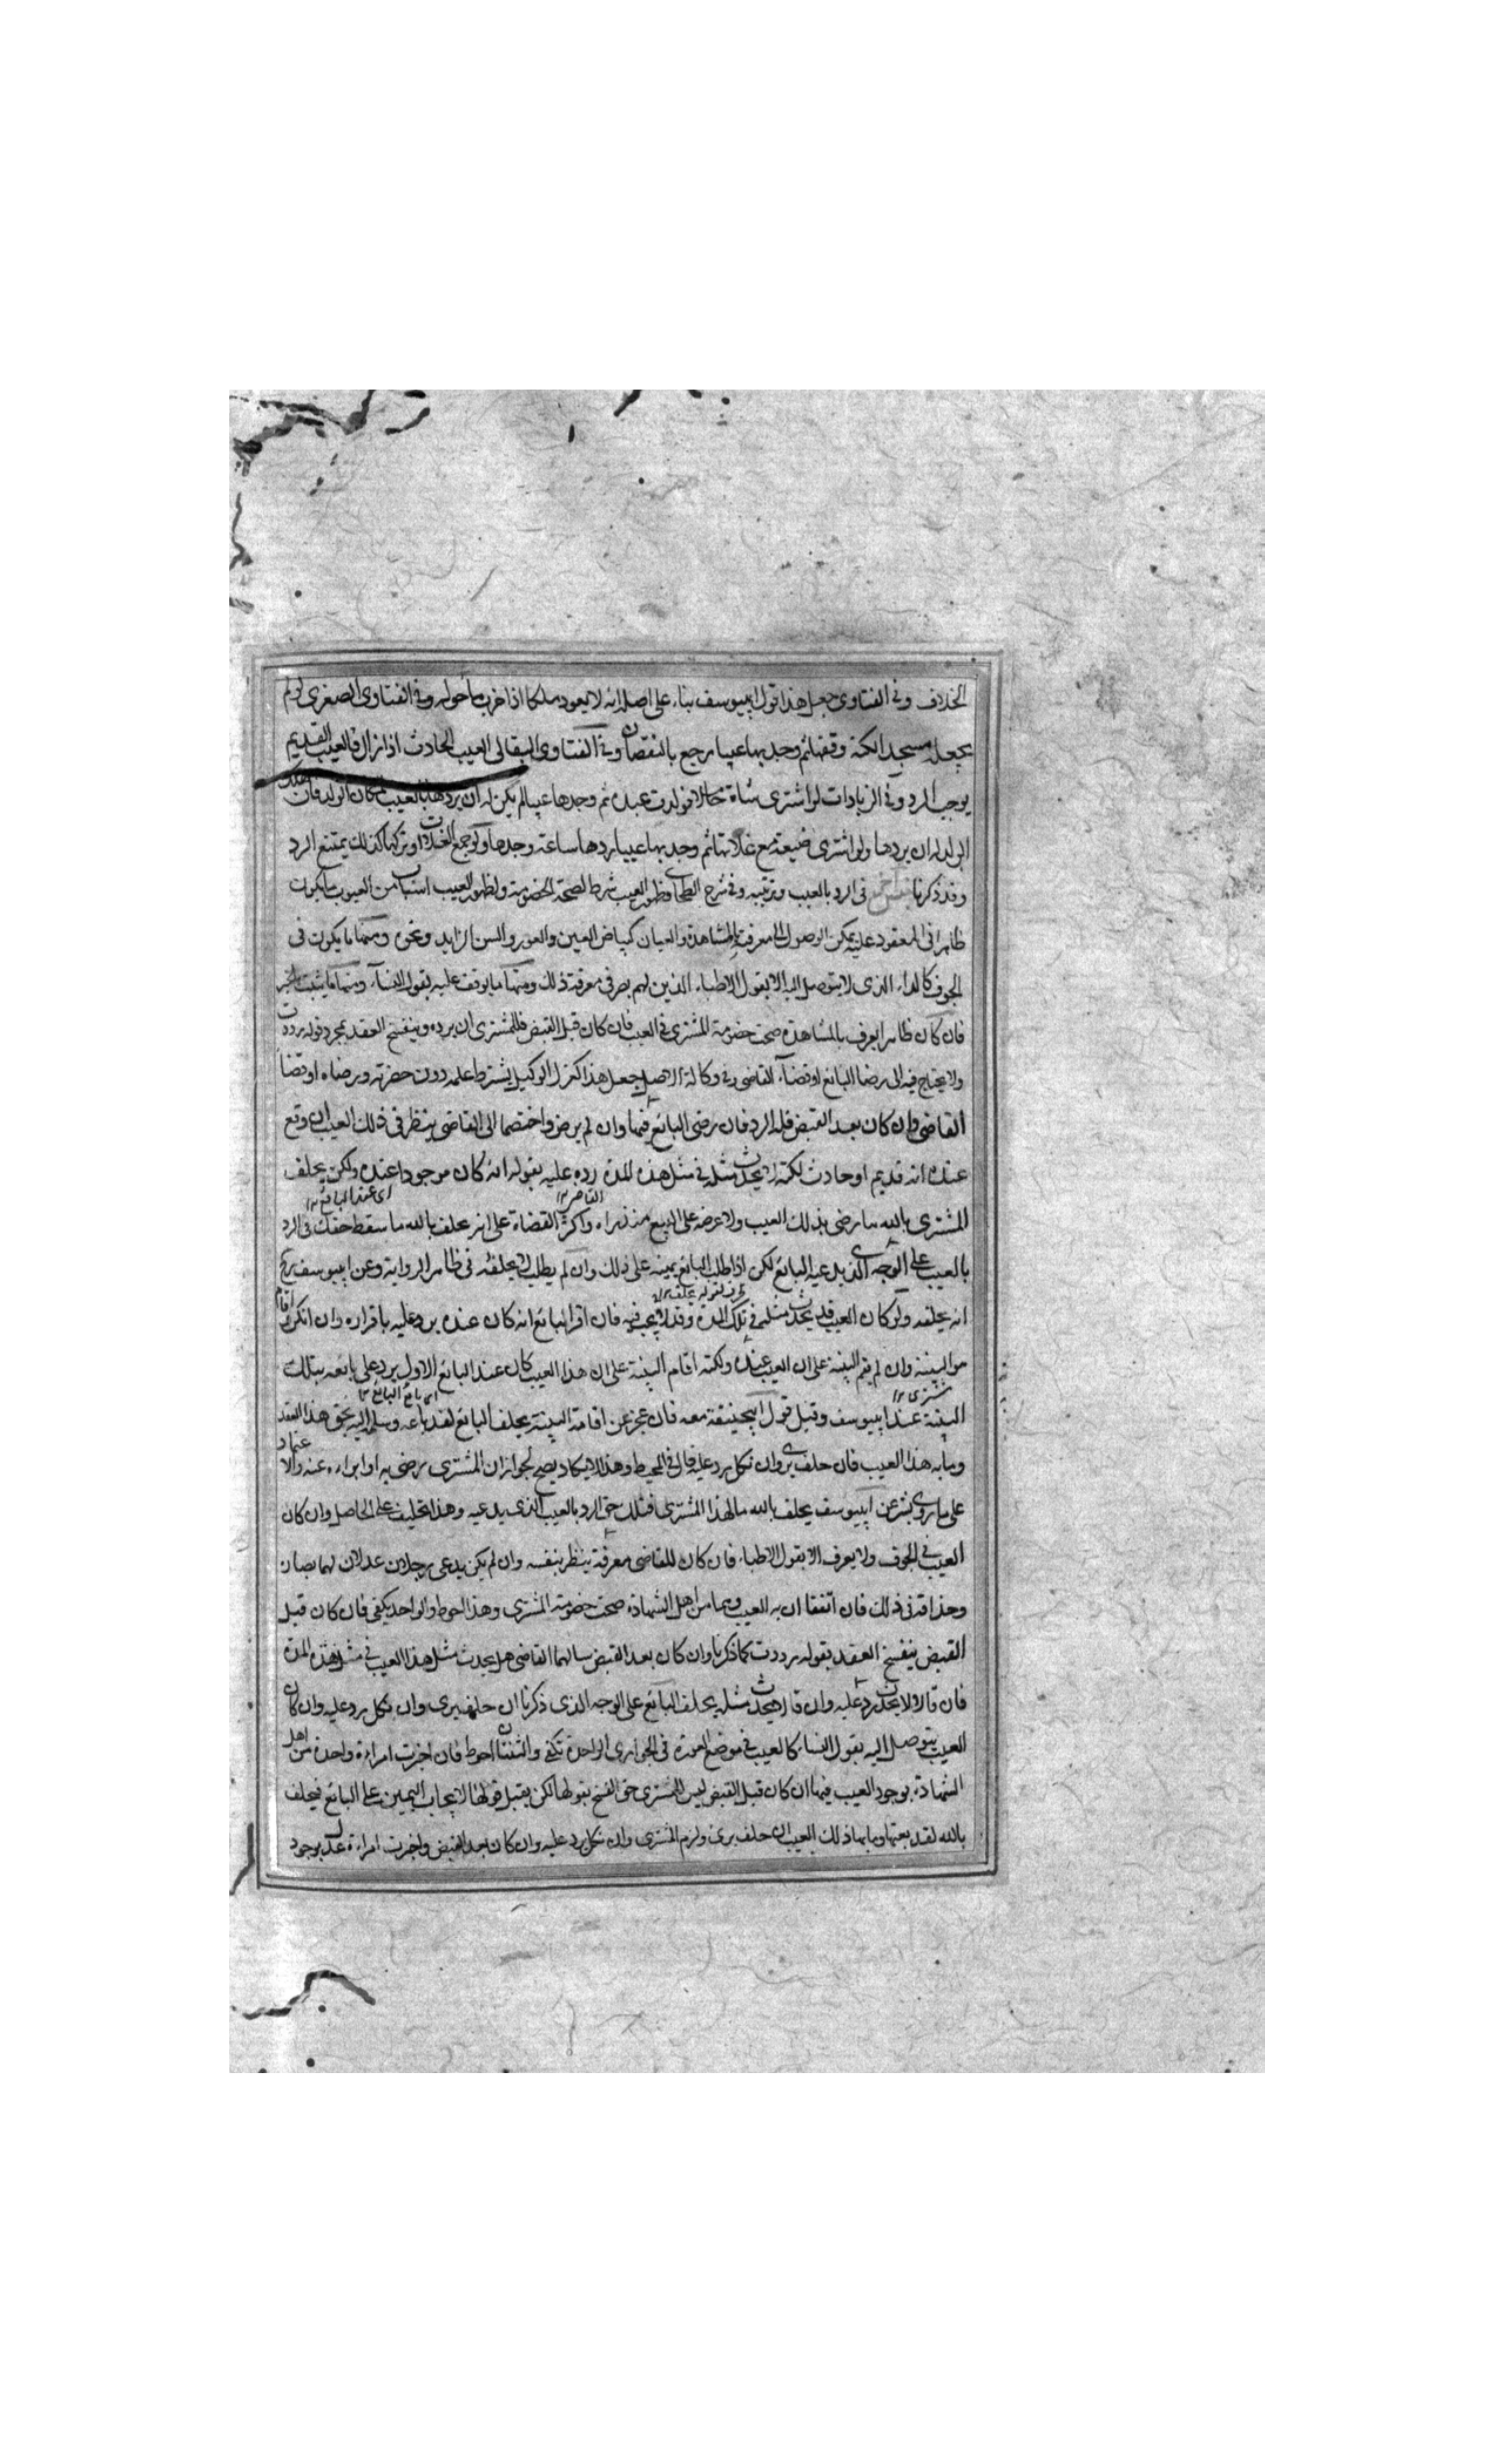 الخلاف وفى الفتاوى جعل هذا قول ابيوسف بناء على اصله انه لا يعود ملكا اذا خرب ما حوله وفى الفتاوى الصغرى لو لم
يجعله مسجدا لكنه وقفها ثم وجد بها عيبا رجع بالنقصان وفى الفتاوى البقالى العيب الحادث اذا زال فالعيب القديم
يوجب الرد وفى الزيادات لو اشترى شاة حاملا فولدت عنده ثم وجدها عيبا لم يكن له ان يردها بالعيب لمكان الولد فان هلك
الولد له ان يردها ولو اشترى ضيعة مع غلاتها ثم وجد بها عيبا ردها ساعة وجدها ولو جمع الغلات او تركها كذلك يمتنع الرد
وقد ذكرنا فى الرد بالعيب وترتيبه وفى شرح الطحاوى ظهور العيب شرط لصحة الخصومة ولظهور العيب اسباب من العيوب ما يكون
ظاهرا فى المعقود عليه يمكن الوصول الى معرفته بالمشاهدة والعيان كبياض العين والعور والسن الزايد ونحوه ومنها ما يكون فى
الجوف كالداء الذى لا يتوصل اليه الا بقول الاطباء الذين لهم بصر فى معرفة ذلك ومنها ما يوقف عليه بقول النساء ومنها ما يثبت بالخبر
فان كان ظاهرا يعرف بالمشاهدة صحت خصومة المشترى فى العيب فان كان قبل القبض فللمشترى ان يرده وينفسخ العقد بمجرد قوله رددت
ولا يحتاج فيه الى رضا البائع او قضاء القاضى وفى وكالة الاصل جعل هذا كعزل الوكيل يشترط علمه دون حضرته ورضاه او قضاء
القاضى وان كان بعد القبض فله الرد فان رضى البائع فبها وان لم يرض واختصما الى القاضى ينظر فى ذلك العيب ان وقع
عنده انه قديم او حادث لكنه لا يحدث مثله فى مثل هذه المدة رده عليه بقوله انه كان موجودا عنده ولكن يحلف
القاضى اى عند البائع
المشترى بالله ما رضى بذلك العيب ولا عرضه على البيع منذ راه واكثر القضاة على انه يحلف بالله ما سقط حقك فى الرد
بالعيب على الوجه الذى يدعيه البائع لكن اذا طلب البائع يمينه على ذلك وان لم يطلب لا يحلفه فى ظاهر الرواية وعن ابيوسف رح
انه يحلفه ولو كان العيب قد يحدث مثله فى تلك المدة وقد لا يحدث فيه فان اقر البائع انه كان عنده يرد عليه باقراره وان انكر اقام
هو البينة وان لم يقم البينة على ان العيب عنده ولكنه اقام البينة على ان هذا العيب كان عند البائع الاول يرد على بائعه بتلك
مشترى اى بائع البائع
البينة عند ابيوسف وقيل قول ابيحنيفة معه فان عجز عن اقامة البينة يحلف البائع لقد باعه وسلمه اليه بحق هذا العقد
وما به هذا العيب فان حلف برى وان نكل يرد عليه قال فى المحيط وهذا لا يكاد يصح لجواز ان المشترى رضى به او ابراه عنه والاعتماد
على ما روى بشر عن ابيوسف يحلف بالله ما لهذا المشترى قبلك حق الرد بالعيب الذى يدعيه وهذا تحليف على الحاصل وان كان
العيب فى الجوف ولا يعرف الا بقول الاطباء فان كان للقاضى معرفة ينظر بنفسه وان لم يكن يدعى رجلان عدلان لهما بصارة
وحذاقة فى ذلك فان اتفقا ان به العيب وهما من اهل الشهادة صحت خصومة المشترى وهذا احوط والواحد يكفى فان كان قبل
القبض ينفسخ العقد بقوله رددت كما ذكرنا وان كان بعد القبض سالهما القاضى هل يحدث مثل هذا العيب فى مثل هذه المدة
فان قالا لا يحدث يرد عليه وان قالا يحدث مثله يحلف البائع على الوجه الذى ذكرنا ان حلف برى وان نكل يرد عليه وان كان
العيب يتوصل اليه بقول النساء كالعيب فى موضع العورة فى الجوارى الواحدة تكفى والثنتان احوط فان اخبرت امراءة واحدة من اهل
الشهادة بوجود العيب فيها ان كان قبل القبض ليس للمشترى حق الفسخ بقولها لكن يقبل قولها لايجاب اليمين على البائع فيحلف
بالله لقد بعتها وما بها ذلك العيب ان حلف برى ولزم المشترى وان نكل يرد عليه وان كان بعد القبض واخبرت امراءة عدل بوجود